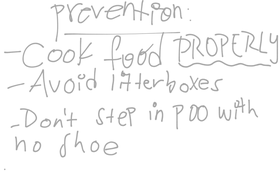 prevention:
- Cook food PROPERLY
- Avoid litterboxes
- Don't step in poo with
no shoe